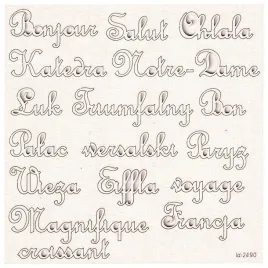 Bonjour Salut Ohlala
Katedra Notre-Dame
Łuk Triumfalny Bon
Pałac wersalski Paryż
Wieża Eiffla voyage
Magnifique Francja
croissant
id:2490